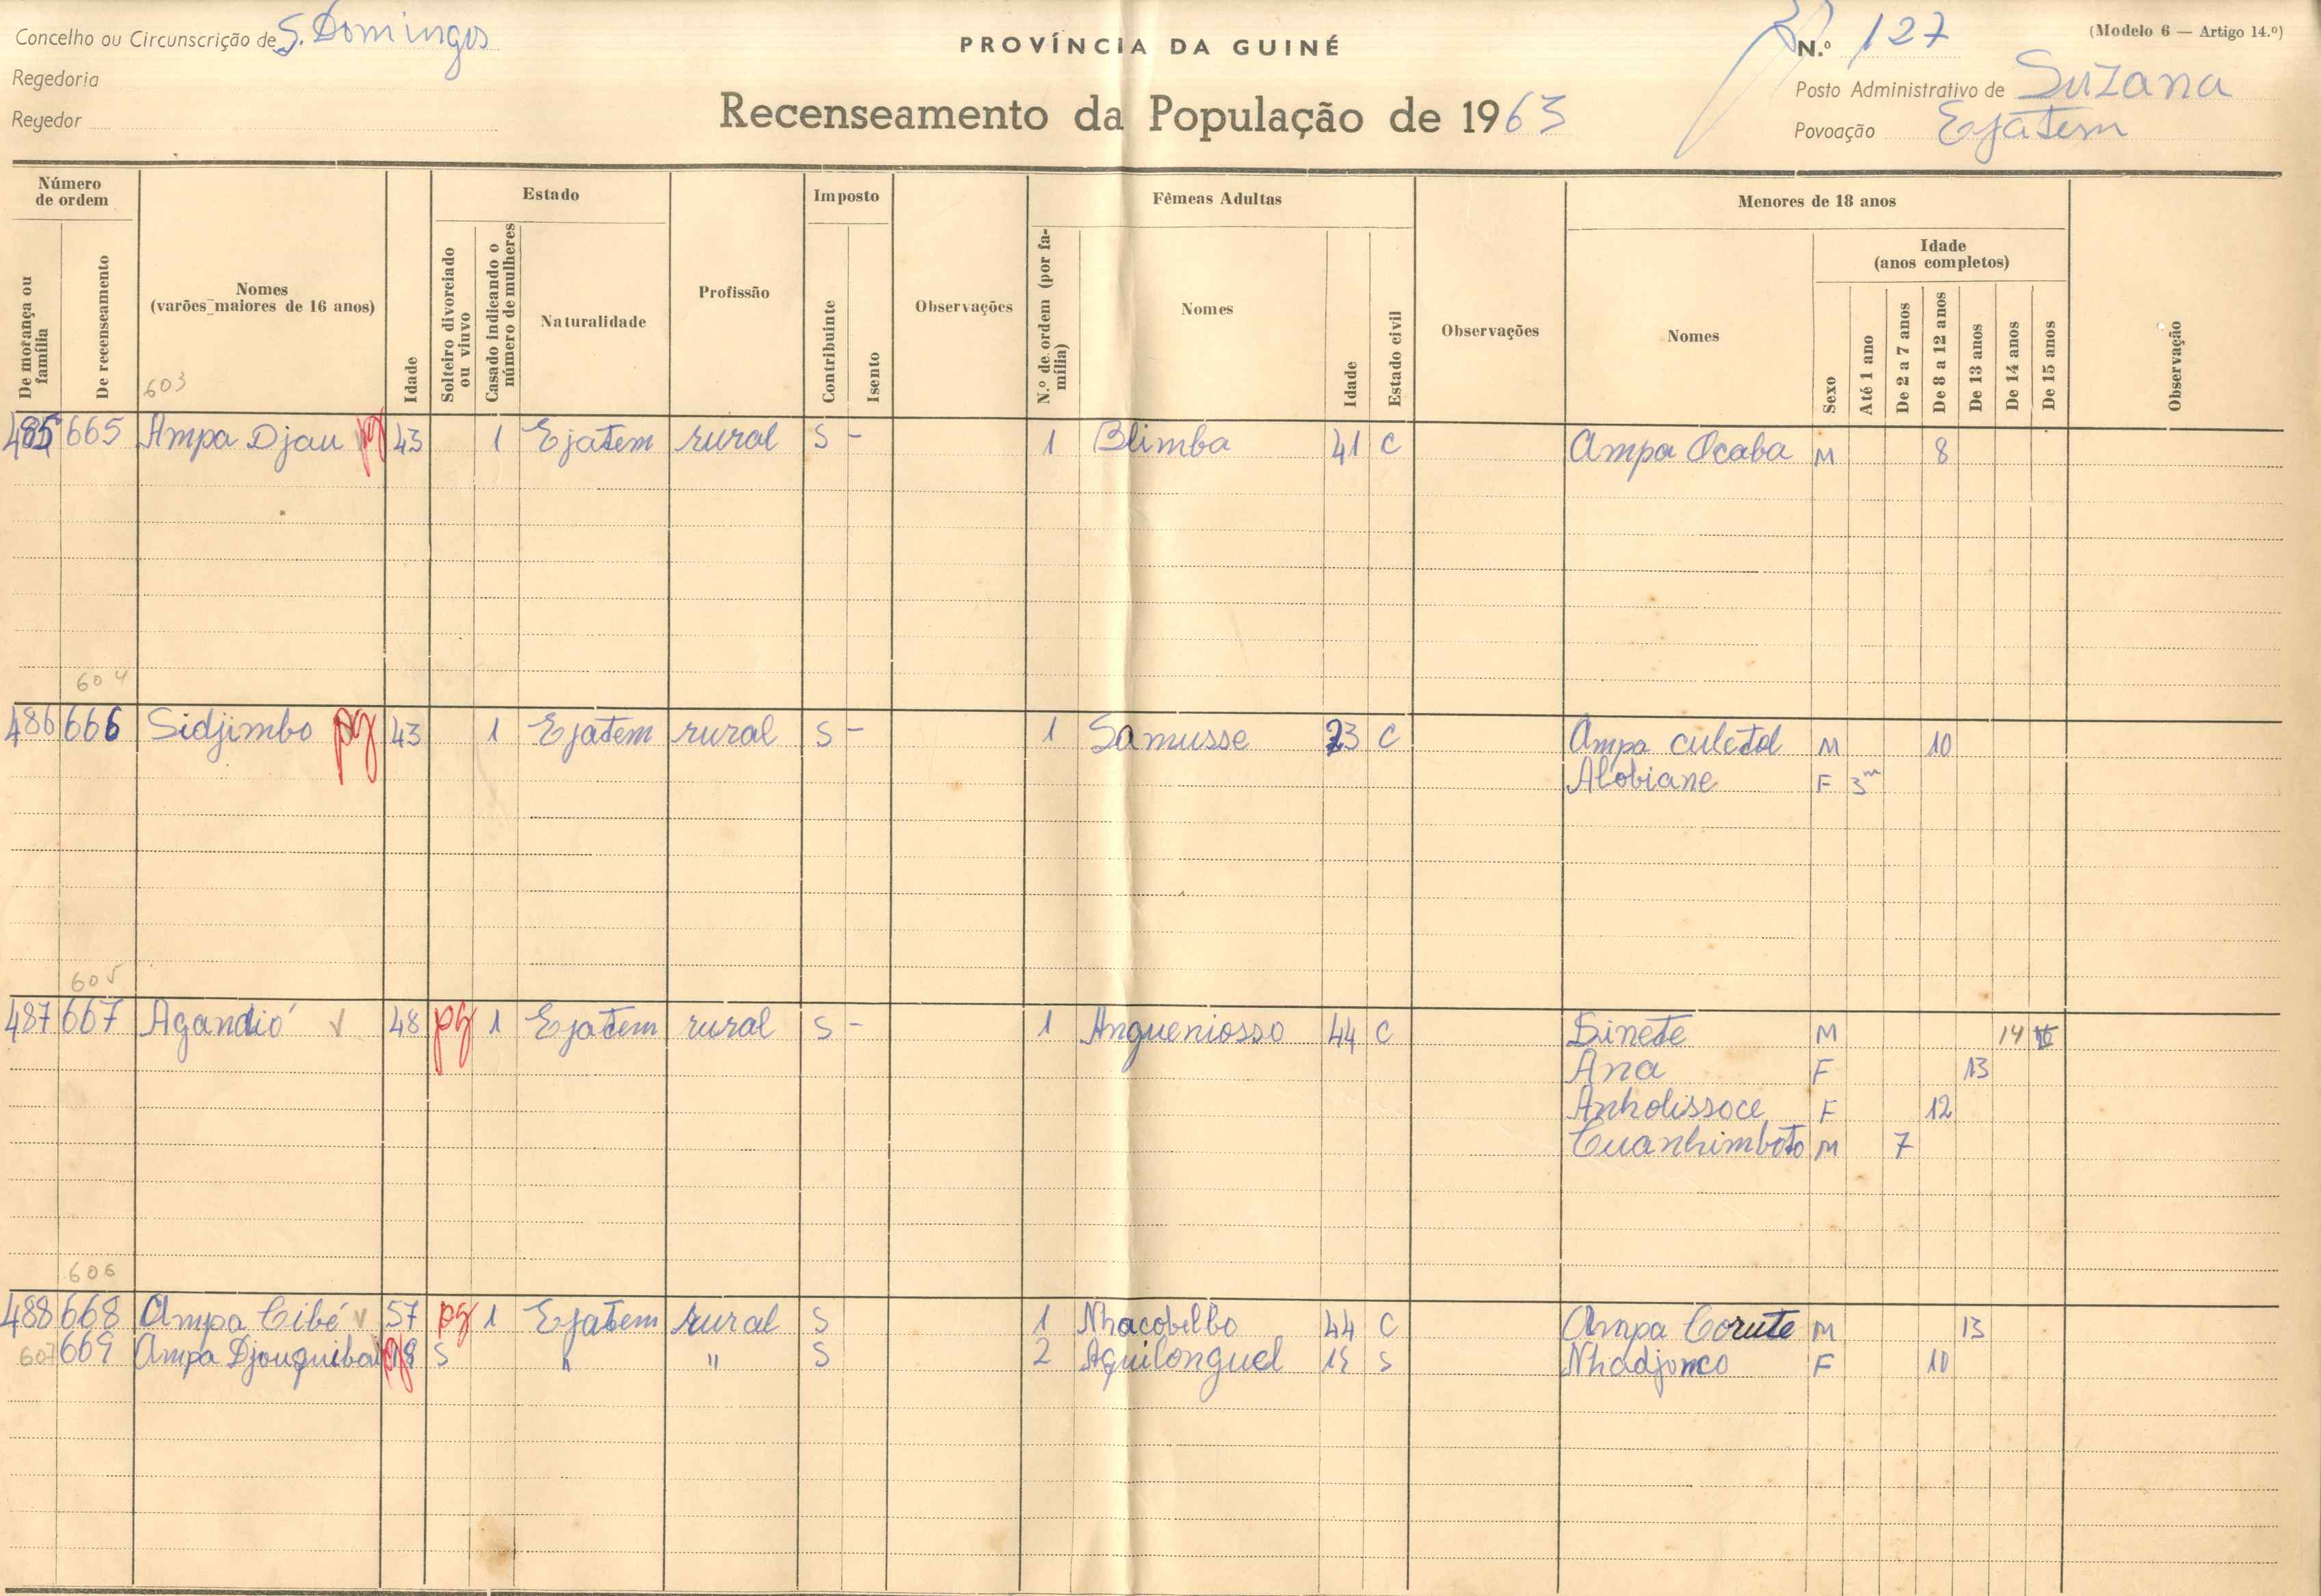 Concelho ou Circunscrição de S. Domingos
PROVÍNCIA DA GUINÉ
N.º 127
(Modelo 6 — Artigo 14.º)
Regedoria
Posto Administrativo de Suzana
Regedor
Recenseamento da População de 1963
Povoação Ejatem
Número de ordem
Estado
Imposto
Fêmeas Adultas
Menores de 18 anos
De morança ou família
De recenseamento
Nomes (varões maiores de 16 anos)
Idade
Solteiro divorciado ou viuvo
Casado indicando o número de mulheres
Naturalidade
Profissão
Contribuinte
Isento
Observações
N.º de ordem (por família)
Nomes
Idade
Estado civil
Observações
Nomes
Sexo
Idade (anos completos)
Até 1 ano
De 2 a 7 anos
De 8 a 12 anos
De 13 anos
De 14 anos
De 15 anos
Observação
603
485 665 Ampa Djau pg 43 1 Ejatem rural S - 1 Blimba 41 C Ampa Ocaba M 8
604
486 666 Sidjimbo pg 43 1 Ejatem rural S - 1 Samusse 23 C Ampa culetol M 10
Alobiane F 3m
605
487 667 Agandió V 48 pg 1 Ejatem rural S - 1 Angueniosso 44 C Sinete M 14
Ana F 13
Anholissoce F 12
Cuanhimboto M 7
606
488 668 Ampa Cibé V 57 pg 1 Ejatem rural S 1 Nhacobelbo 44 C Ampa Corute M 13
607 669 Ampa Djouguibai pg S " " S 2 Aquilonguel S Nhadjonco F 10